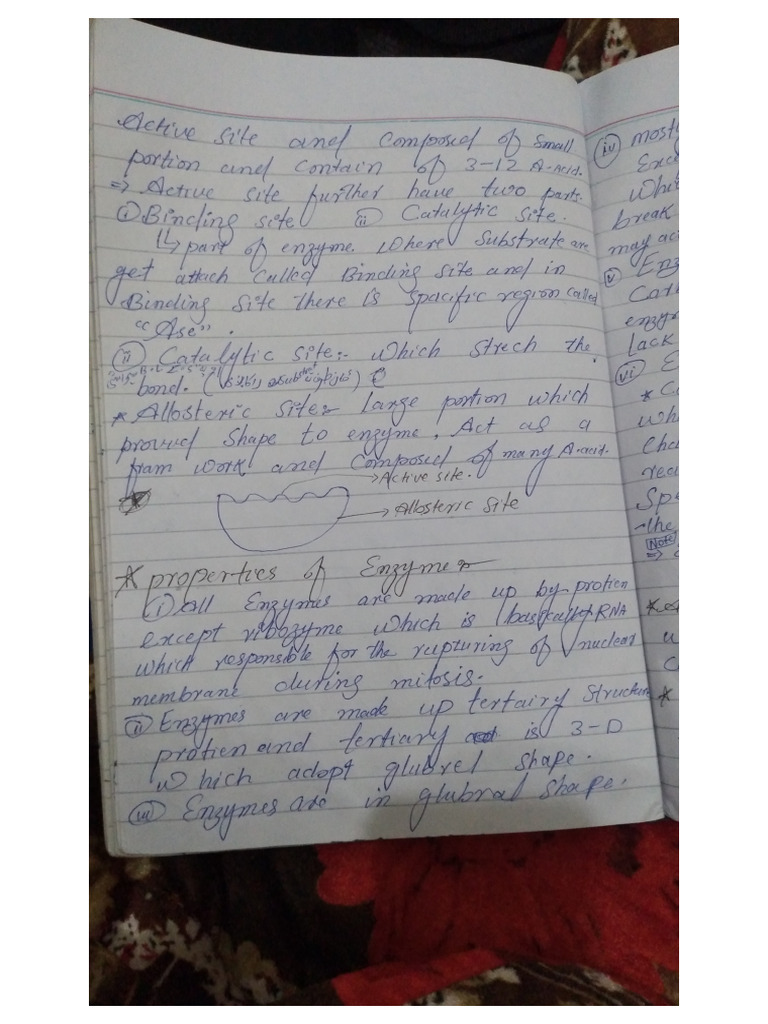 Active site and composed of small
portion and contain of 3-12 A-acid.
=> Active site further have two parts.
(i) Binding site (ii) Catalytic site.
↳ part of enzyme where substrate are
get attach called Binding site and in
Binding site there is spacific region called
"Ase".
(ii) Catalytic site:- which strech the
bond.
* Allosteric site:- large portion which
provid shape to enzyme. Act as a
fram work and composed of many A-acid.
→ Active site.
→ Allosteric site
* properties of Enzyme:-
(i) All Enzymes are made up by protien
except ribozyme which is basically RNA
which responsible for the rupturing of nuclear
membrane during mitosis.
(ii) Enzymes are made up tertairy structure
protien and tertiary is 3-D
which adopt glubrel shape.
(iii) Enzymes are in glubral shape.
(iv) mostly
break
may
(v)
lack
(vi) E
* C
the
Note
=>
*